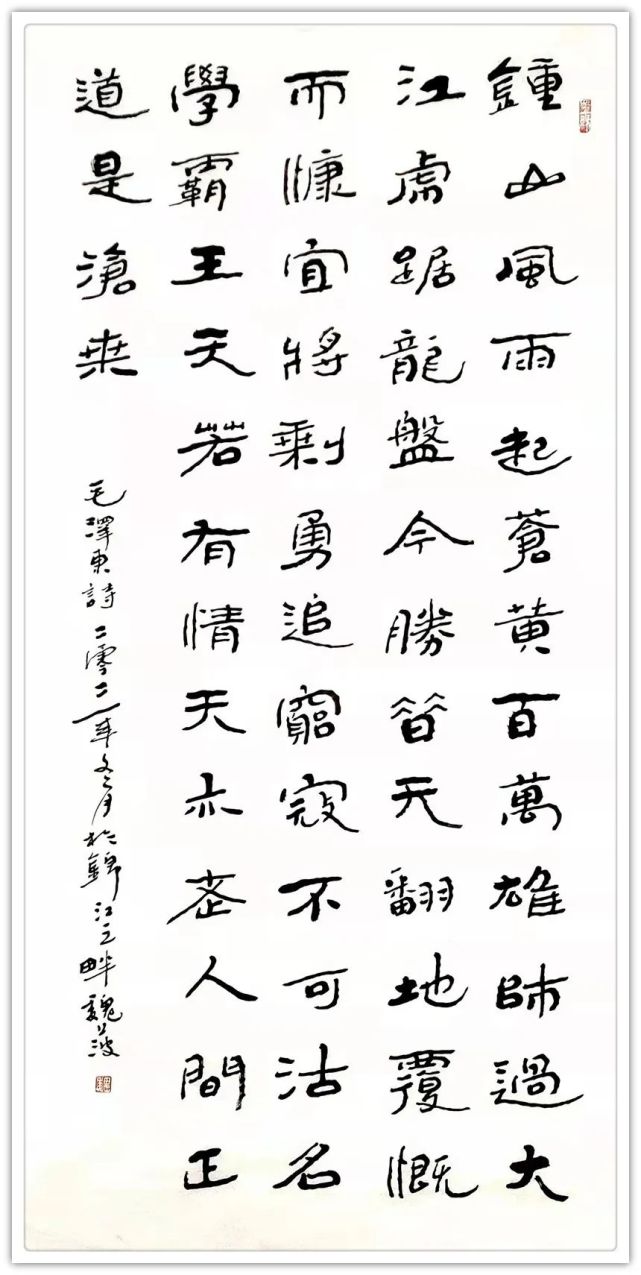 鍾山風雨起蒼黃百萬雄師過大
江虎踞龍盤今勝昔天翻地覆慨
而慷宜將剩勇追窮寇不可沽名
學霸王天若有情天亦老人間正
道是滄桒
毛澤東詩二零二一年冬月於錦江之畔魏